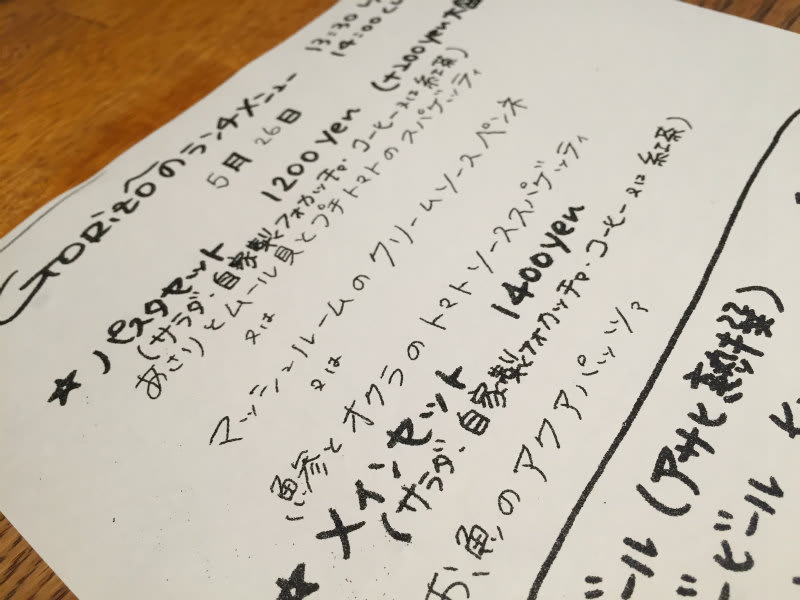 GORizoのランチメニュー
13:30
14:00
5月26日
★パスタセット 1200yen (+200yen大盛
(サラダ・自家製フォカッチャ・コーヒー又は紅茶)
あさりとムール貝とプチトマトのスパゲッティ
又は
マッシュルームのクリームソースペンネ
又は
鰺とオクラのトマトソーススパゲッティ
★メインセット 1400yen
(サラダ・自家製フォカッチャ・コーヒー又は紅茶)
お魚のアクアパッツァ
ビール(アサヒ熟撰)
ビール